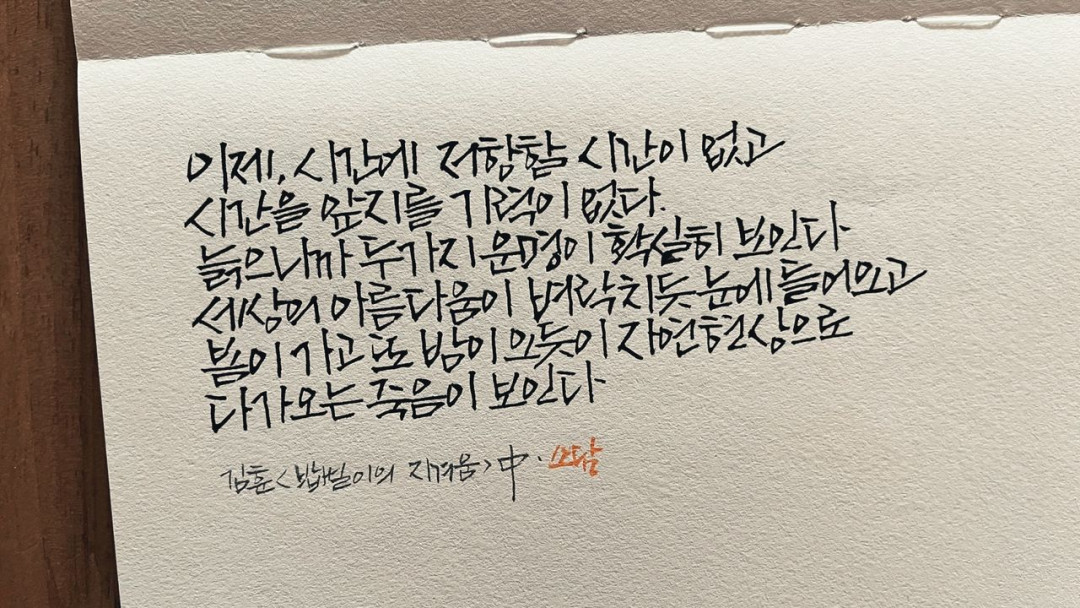 이제, 시간에 저항할 시간이 없고
시간을 앞지를 기력이 없다.
늙으니까 두가지 운명이 확실히 보인다
세상의 아름다움이 벼락치듯 눈에 들어오고
봄이 가고 또 밤이 오듯이 자연현상으로
다가오는 죽음이 보인다
김훈 <밥벌이의 지겨움> 中.